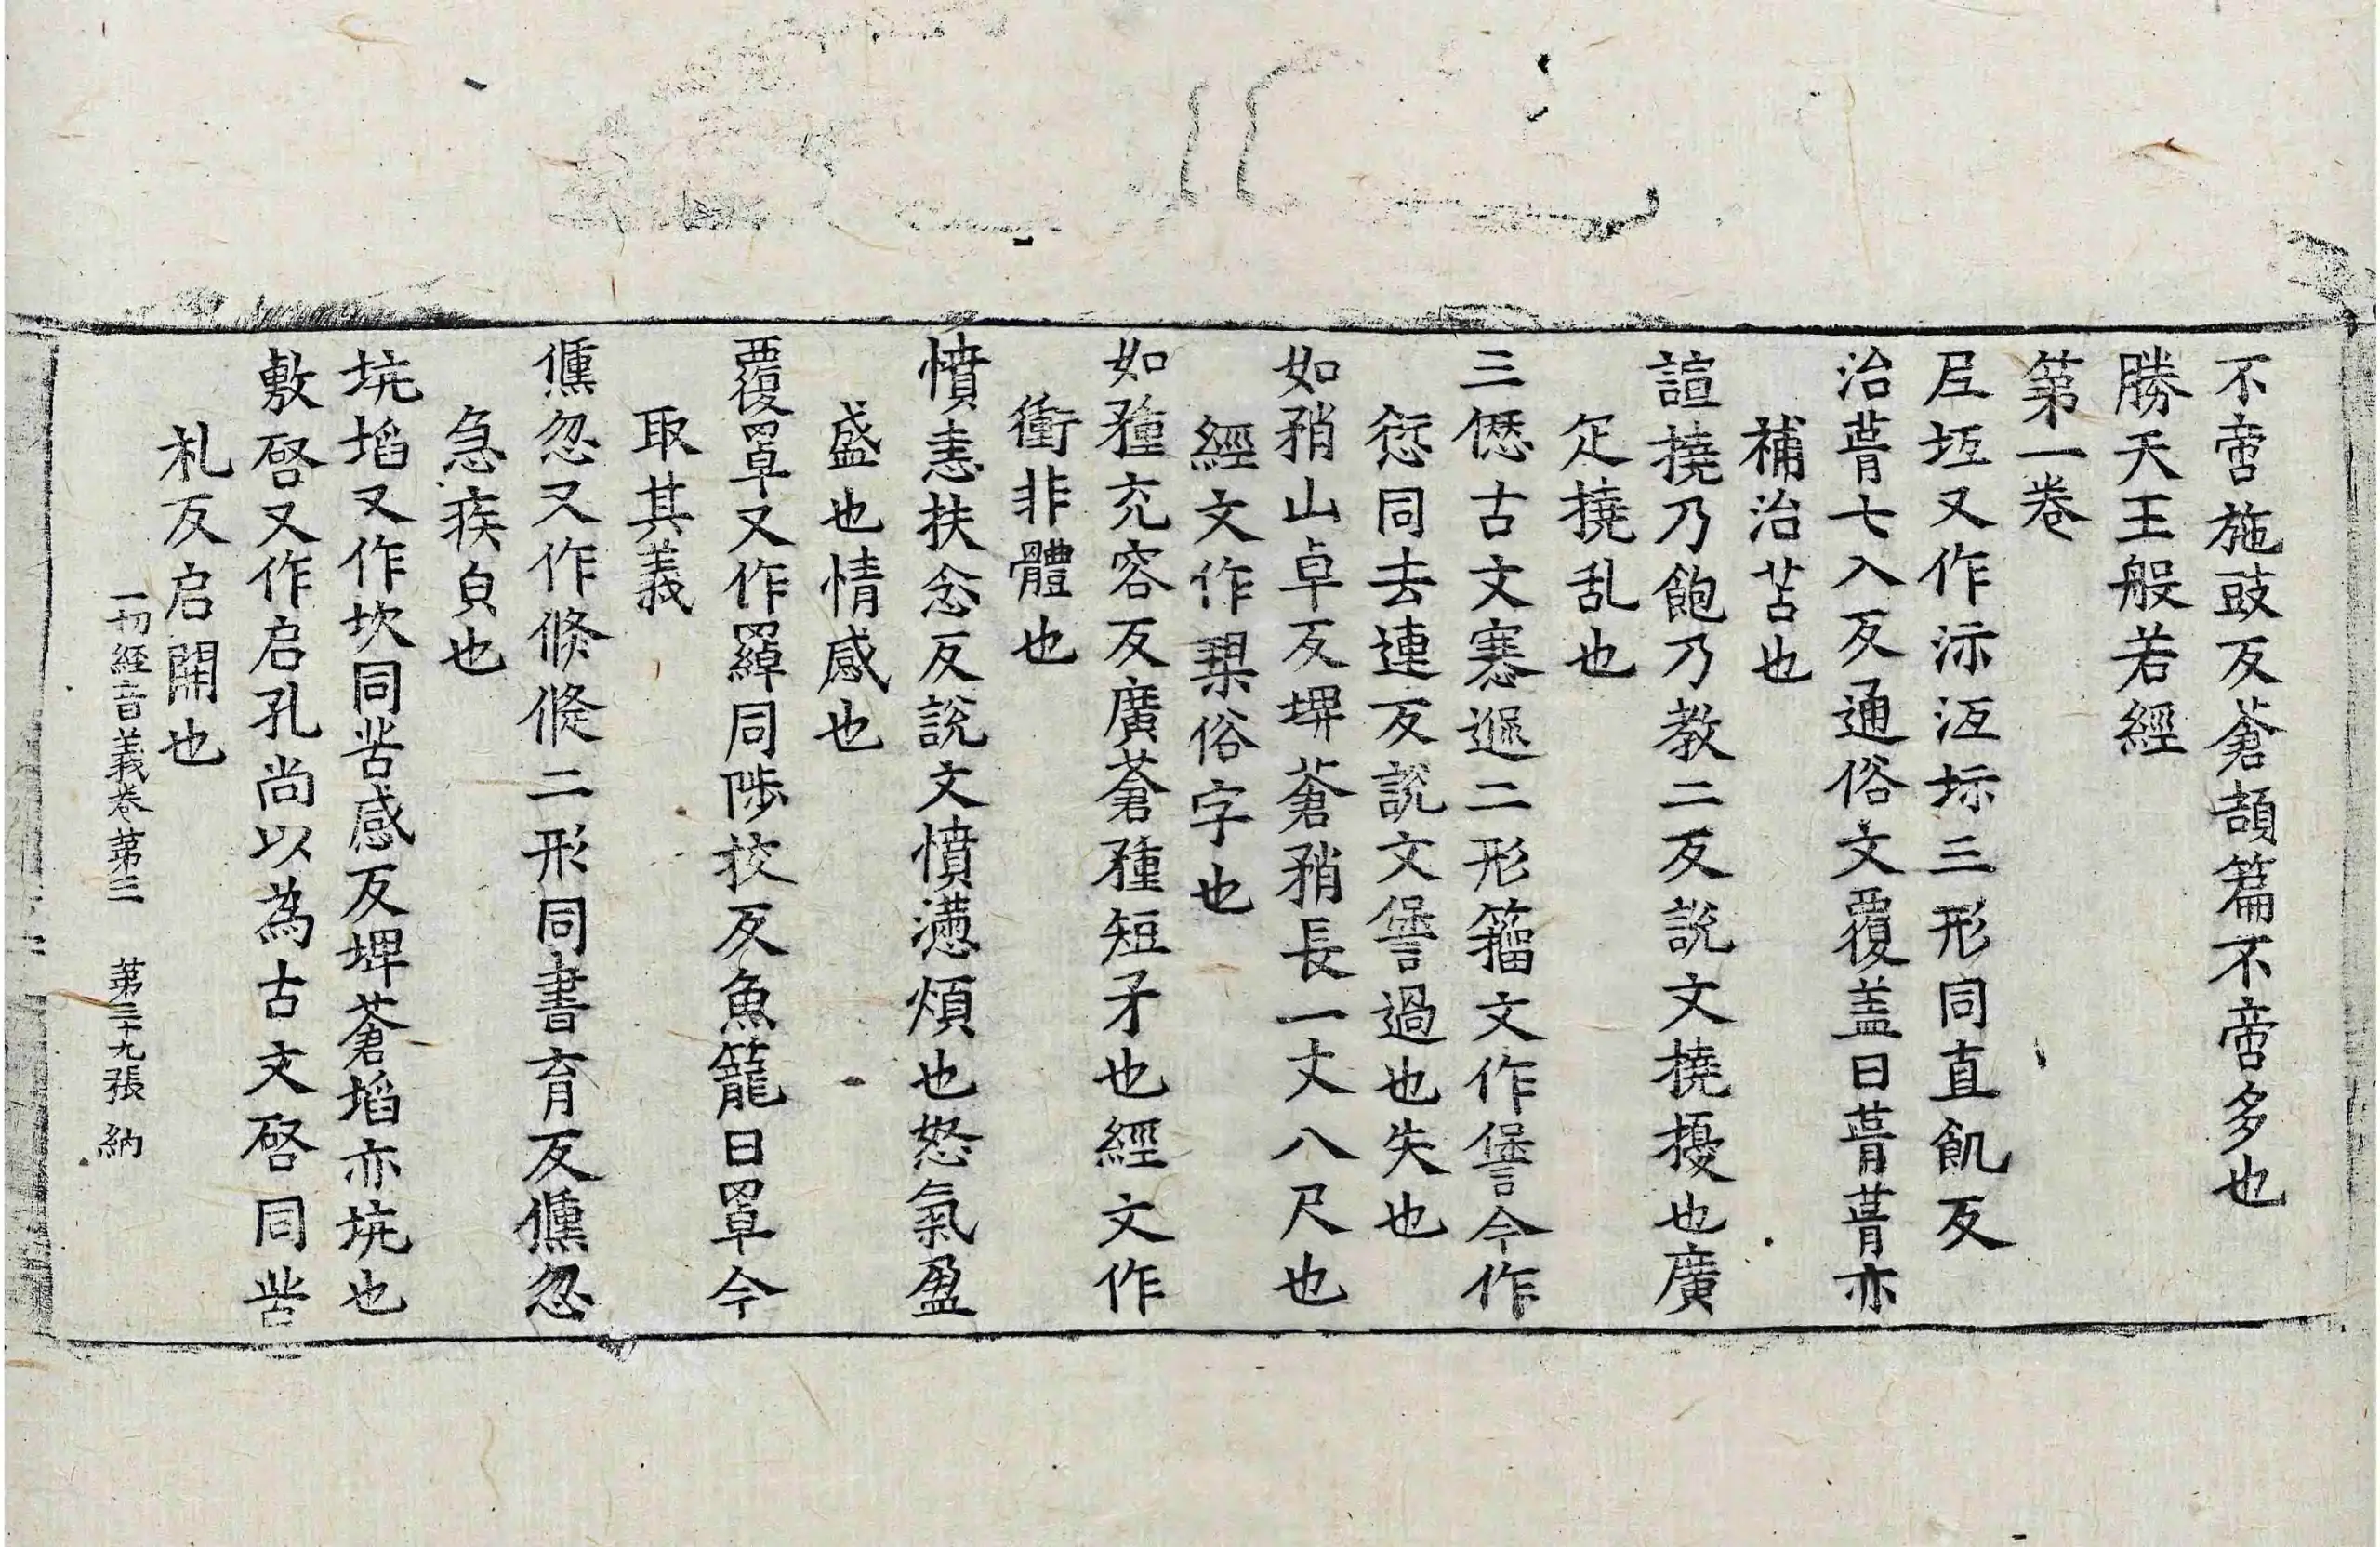 不啻施豉反蒼頡篇不啻多也
勝天王般若經
第一卷
坻又作泜汦坁三形同直飢反
治葺七入反通俗文覆盖曰葺葺亦
補治苫也
諠撓乃飽乃教二反說文撓擾也廣
疋撓乱也
三僁古文𠎝遃二形籀文作諐今作
愆同去連反說文諐過也失也
如矟山卓反埤蒼矟長一丈八尺也
經文作槊俗字也
如𥍲充容反廣蒼𥍲短矛也經文作
衝非體也
憤恚扶忿反說文憤懣煩也怒氣盈
盛也情感也
覆罩又作羄同陟挍反魚籠曰罩今
取其義
儵忽又作倐倏二形同書育反儵忽
急疾皃也
坑埳又作坎同苦感反埤蒼埳亦坑也
敷啓又作启孔尚以為古文啓同苦
札反启開也
一切經音義卷第三 第三十九張 納